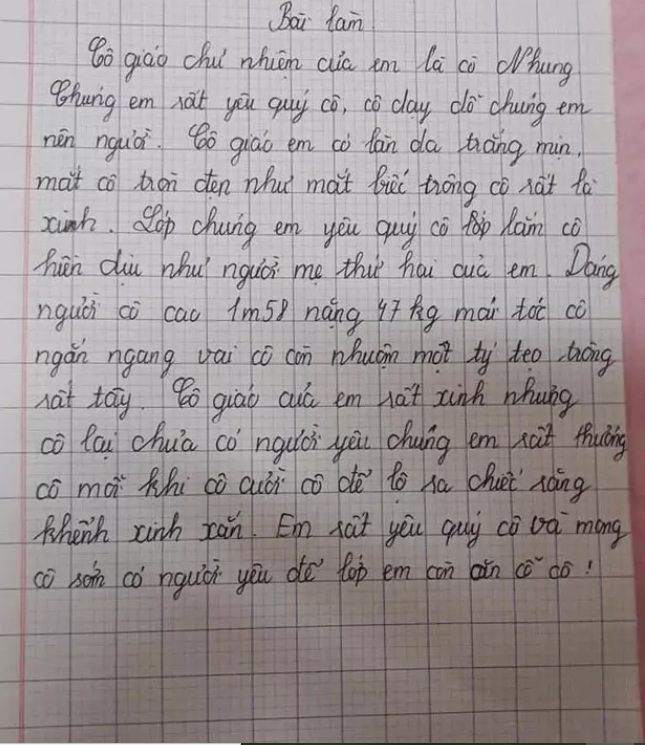 Bài làm
Cô giáo chủ nhiệm của em là cô Nhung
Chúng em rất yêu quý cô, cô dạy dỗ chúng em
nên người. Cô giáo em có làn da trắng mịn,
mắt cô tròn đen như mắt biếc trông cô rất là
xinh. Lớp chúng em yêu quý cô lắm cô
hiền dịu như người mẹ thứ hai của em. Dáng
người cô cao 1m58 nặng 47 kg mái tóc cô
ngắn ngang vai cô còn nhuộm một tý tẹo trông
rất tây. Cô giáo của em rất xinh nhưng
cô lại chưa có người yêu chúng em rất thương
cô mỗi khi cô cười cô để lộ ra chiếc răng
khểnh xinh xắn. Em rất yêu quý cô và mong
cô sớm có người yêu để lớp em còn ăn cỗ cô!